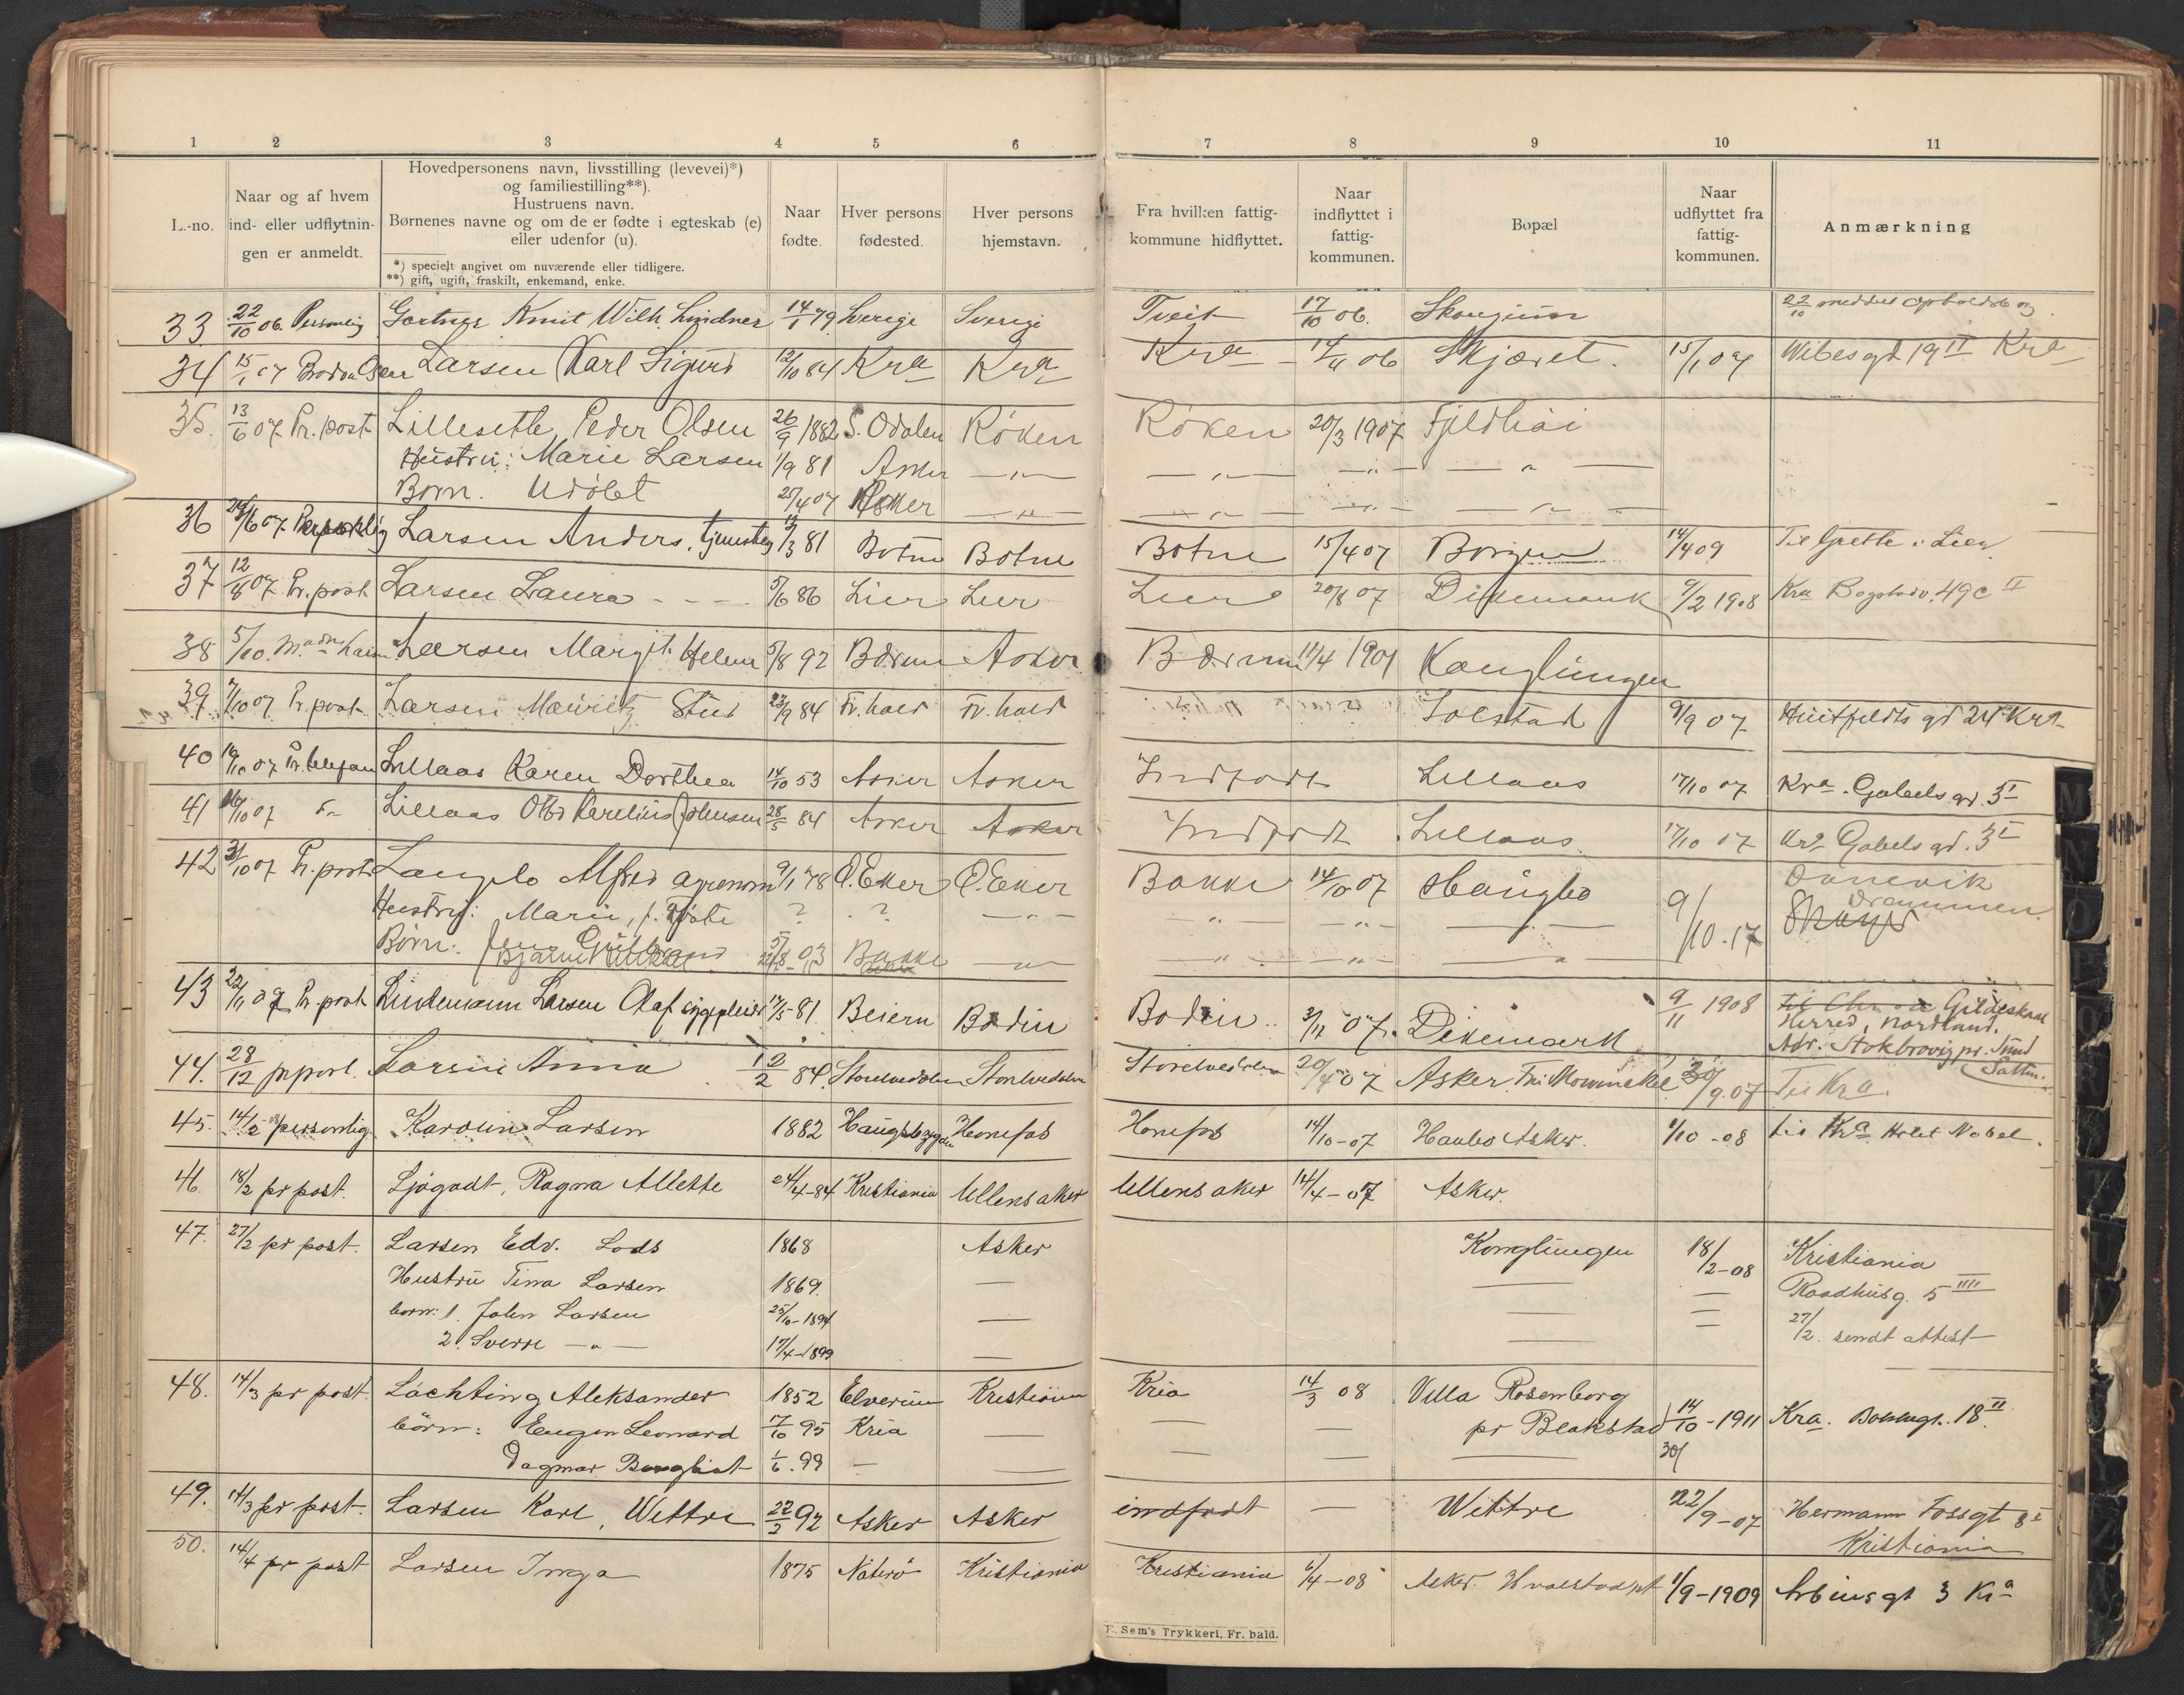 1 2 3 4 5 6 7 8 9 10 11
L.-no.
Naar og af hvem
ind- eller udflytnin-
gen er anmeldt.
Hovedpersonens navn, livsstilling (levevei)*)
og familiestilling**).
Hustruens navn.
Børnenes navne og om de er fødte i egteskab (e)
eller udenfor (u).
*) specielt angivet om nuværende eller tidligere.
**) gift, ugift, fraskilt, enkemand, enke.
Naar
fødte.
Hver persons
fødested.
Hver persons
hjemstavn.
Fra hvilken fattig-
kommune hidflyttet.
Naar
indflyttet i
fattig-
kommunen.
Bopæl
Naar
udflyttet fra
fattig-
kommunen.
Anmærkning
33 22/10 06. Personlig Gartner Knut Wilh. Lindner 14/1 79 Sverige Sverige Tveit 17/10 06. Skougum 22/10
34 15/1 07 Larsen Karl Sigurd 12/10 84 Kra Kra Kra 14/11 06 Skjæret. 15/1 07 Wibesgd 19 II Kra
35. 13/6 07 Pr. post Lilleseth, Peder Olsen 26/9 1882 S. Odalen Røken Røken 20/3 1907 Fjeldhøi
Hustru: Marie Larsen 1/9 81 Asker — " — — " — — " — — " —
Børn. Udøbt 25/4 07 Asker — " — — " — — " — — " —
36 /6 07 Larsen Anders, 3 81 Botne Botne Botne 15/4 07 Borgen 14/4 09 Til Grette i Lier
37 12/8 07 Pr. post Larsen Laura - - - 5/6 86 Lier Lier Lier 20/8 07 Dikemark 9/2 1908 Kra Bogstadv. 49c II
38 5/10. Larsen Margit Helene 5/8 92 Bærum Asker Bærum 11/4 1907 Konglungen
39 7/10 07 Pr. post Larsen Mauritz Stud 23/9 84 Fr. hald Fr. hald Solstad 9/9 07 Huitfeldts gd 24 Kra
40 19/10 07 Pr. telefon Lillaas Karen Dorthea 14/10 53 Asker Asker Indfødt Lillaas 17/10 07 Kra. Gabels gd. 3 I
41 19/10 07 Lillaas Otto Karelius Johnsen 28/5 84 Asker Asker Indfødt Lillaas 17/10 07 Kra Gabels gd. 3 I
42 31/10 07 Pr. post Langelo Alfred agronom 9/1 78 Ø. Eker Ø. Eker Bakke 14/10 07 Haugbo 9/10 . 17 Danevik
Drammen.
Hustru: Marie, f. ? ? — " — — " — — " — — " —
Børn: 03 Bakke — " — — " — — " — — " —
43 22/11 07 Pr. post Lindemann Larsen Olaf sygepleier 17/5 81 Beiern Bodin Bodin.. 3/11 07. Dikemark 9/11 1908 Gildeskaal
Herred, Nordland.
Adr. Stokbrovig pr. Sund
44. 28/12 pr post. Larsen Anna 12/2 84. Storelvedalen Storelvedalen Storelvedalen 20/4 07 Asker 30/9. 07 Til Kra.
45. 14/2 08 personlig. Karoline Larsen 1882 Haugsbygden Hønefos Hønefos 14/10-07 Haubo Asker. 1/10 -08 til Kra Hotel Nobel.
46. 18/2 pr post. Ljøgodt, Ragna Allette 24/4-84 Kristiania Ullensaker Ullensaker 14/4-07 Asker.
47. 27/2 pr post. Larsen Edv. Lods 1868 Asker Konglungen 18/2-08 Kristiania
Hustru Tina Larsen 1869. — — — Raadhusg. 5 IIII
børn: 1. John Larsen 25/10-1894 — — — 27/2. sendt attest
2. Sverre — " — 17/4-1899 — — —
48. 14/3 pr post. Løchting Aleksander 1852 Elverum Kristiania Kria 14/3 08 Villa Rosenborg
børn: Eugen Leonard 17/10 95 Kria — — — pr Blakstad 14/10-1911 Kra. 18 II.
Dagmar Bergliot 1/6. 99 — — — — 30/
49. 14/3 pr post. Larsen Karl, Wettre 22/2 92 Asker Asker indfødt — Wettre 22/9-07 Hermann Fossgt 8 I
Kristiania
50. 14/4 pr post Larsen Inga 1875 Nøterø Kristiania Kristiania 6/4-08 Asker. Hvalstad st 1/9-1909 Arbinsgt 3 Kra
F. Sem's Trykkeri, Fr. hald.
M
N
O
P